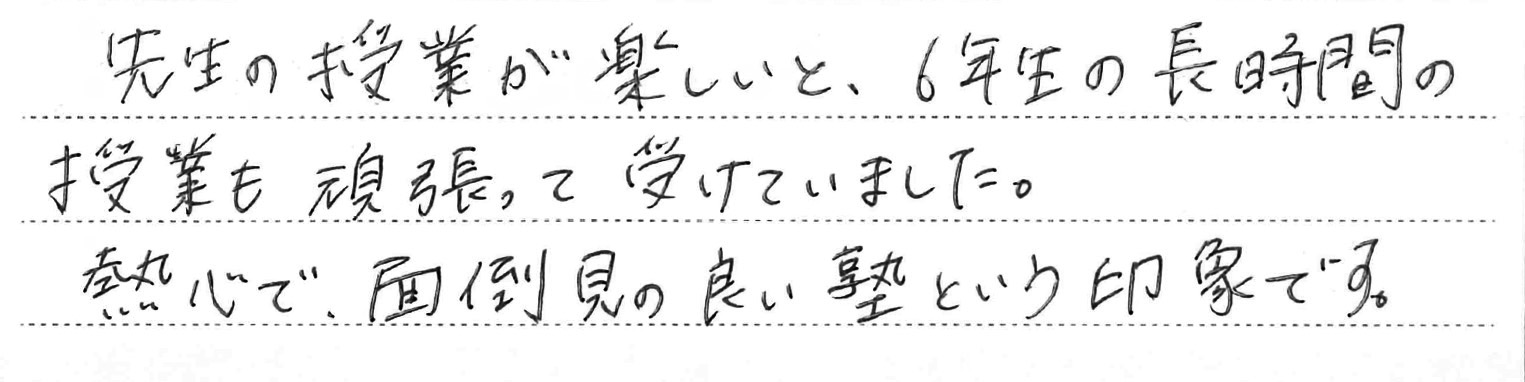 先生の授業が楽しいと、6年生の長時間の
授業も頑張って受けていました。
熱心で、面倒見の良い塾という印象です。